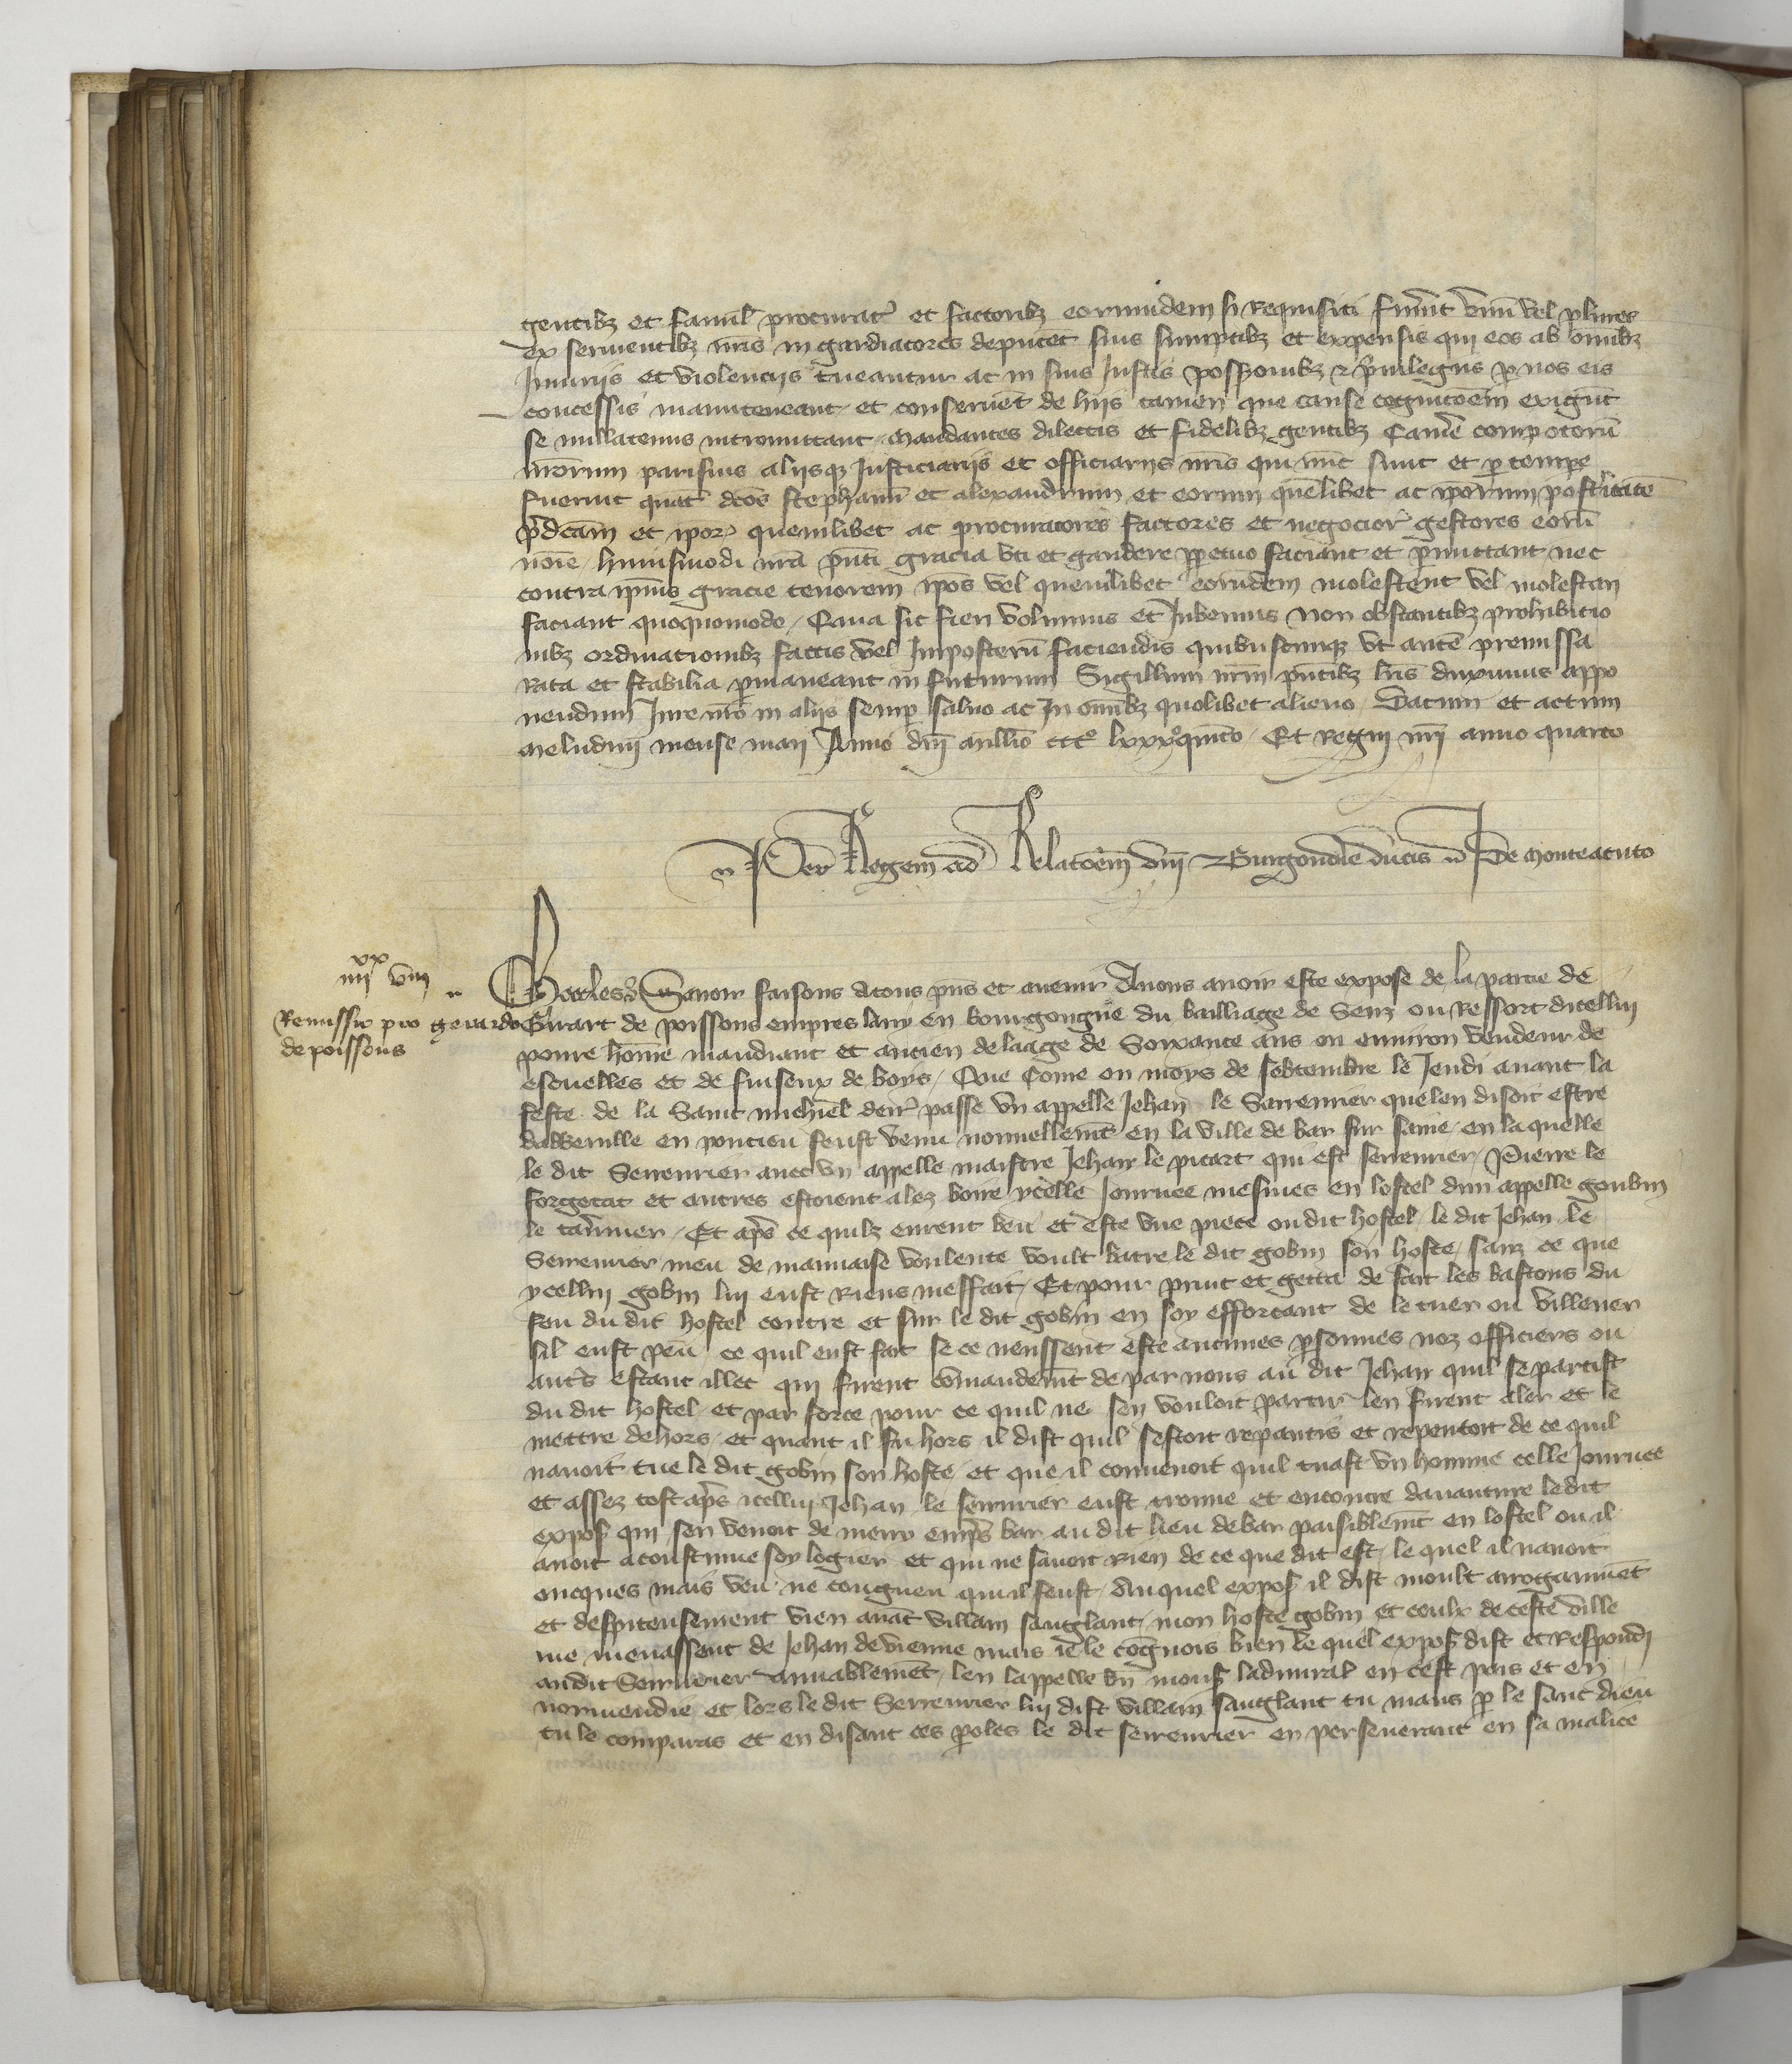 gentibz et famul procurat et factoribz eorumdem si Requisiti fuerint vnu vel plures
ex seruientibz nris in gardiatores deputet suis sumptibz et expensis qui eos ab omibz
Iniuriis et violenciis tueantur ac in suis Iustis possonibz et priuilegiis p nos eis
concessis manuteneant et conseruet de hiis tamen que cause cognitoem exigut
se nullatenus intromittant Mandantes dilectis et fidelibz gentibz Camere compotoru
nrorum parisius aliisqz Iusticiariis et officiariis nris qui nuc sunt et p tempe
fuerint quat dcos stephanu et alexandrum et eorum quelibet ac iporum posteritate
pdcam et ipor quemlibet ac procuratores factores et negocior gestores eoru
noie huiusmodi nra pnti gracia vti et gaudere ppetuo faciant et pmittant nec
contra ipius gracie tenorem ipos vel quemlibet eorumdem molestent vel molestari
faciant quoquomodo Quia sic fieri volumus et Iubemus non obstantibz prohibicio
nibz ordinacionibz factis vel Imposteru faciendis quibuscumqz vt aute premissa
Rata et stabilia pmaneant in futurum Sigillum nrm pntibz lris duximus appo
nendum Iure nro in aliis semp saluo ac In omibz quolibet alieno Datum et actum
meleduni mense maii Anno dni millio ccco lxxxo quito Et Regni nri anno quarto
Per Regem ad Relacoem dni Burgondie ducis J De monteacuto
xx
iiii viii
Remissio pro gerardo
de poissons
Charles &c Sauoir faisons a tous pns et auenir Auons auoir este expose de la partie de
Girart de poissons empres lary en bourgongne du bailliage de Senz ou Ressort dicellui
poure home mandiant et ancien de laage de Soixante ans ou enuiron vendeur de
escuelles et de fuiseux de boys Que Come ou moys de septembre le Jeudi auant la
feste de la Saint michiel derr passe vn appelle Jehan le Serreurier que len disoit estre
dabbeuille en pontieu feust venu nouuellemt en la ville de bar sur saine en la quelle
le dit Serreurier auec vn appelle maistre Jehan le picart qui est serreurier Pierre le
forgetat et autres estoient alez boire ycelle Journee mesmes en lostel dun appelle goubin
le tanneur Et aps ce quilz eurent beu et este vne piece oudit hostel le dit Jehan le
Serreurier meu de mauuaise voulente voult batre le dit gobin son hoste sanz ce que
ycellui gobin lui eust Riens meffait Et pour print et getta de fait les bastons du
feu du dit hostel contre et sur le dit gobin en soy efforcant de le tuer ou villener
sil eust peu ce quil eust fait se ce neussent este aucunes psonnes noz officiers ou
autrs estant illec qui firent comandemt de par nous au dit Jehan quil se partist
du dit hostel et par force pour ce quil ne sen vouloit partir len firent aler et le
mettre dehors et quant il fu hors il dist quil sestoit repantis et repentoit de ce quil
nauoit tue le dit gobin son hoste et que il conuenoit quil tuast vn homme celle Journee
et assez tost aps icellui Jehan le serreurier eust trouue et encontre dauanture ledit
expos qui sen venoit de meuro emps bar au dit lieu de bar paisiblemt en lostel ou il
auoit acoustume soy logier et qui ne sauoit rien de ce que dit est le quel il nauoit
oncques mais veu ne congneu quil feust Auquel expos il dist moult arrogamment
et despiteusement vien auat villain sanglant mon hoste gobin et ceulx de ceste ville
me menassent de Jehan de vienne mais ie le cognois bien le quel expos dist et Respondi
audit Serreurier amiablement len lappelle bn mons ladmiral en cest pais et en
normendie et lors le dit Serreurier lui dist villain sanglant tu mans p le sanc dieu
tu le comparas et en disant ces poles le dit serreurier en perseuerant en sa malice